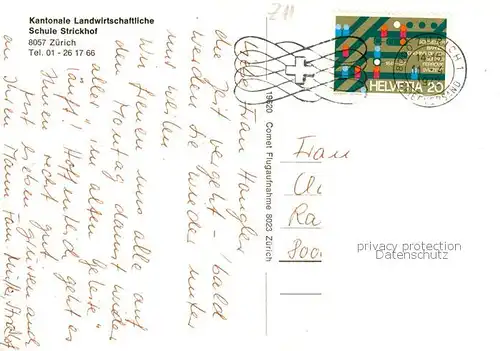 Kantonale Landwirtschaftliche
Schule Strickhof
8057 Zürich
Tel. 01 - 26 17 66
Z11
HELVETIA 20
Liebe Frau
die Zeit vergeht - bald
werden Sie wieder unter
uns weilen.
Wir freuen uns alle auf
den Montag, damit wieder
alles "im alten Geleise"
läuft. Hoffentlich geht es
Ihnen recht gut.
Mit lieben Grüssen auch
an Ihren Mann
19620 Comet Flugaufnahme 8023 Zürich
Frau
800
privacy protection
Datenschutz